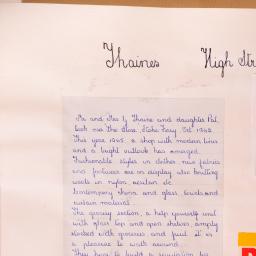 Thaines High Str
Mr and Mrs J Thaine and daughter Pat,
took over The Stores, Stoke Ferry Oct. 1962.
This year 1965. a shop with modern lines
and a bright outlook has emerged.
Fashionable styles in clothes, new fabrics
and footwear are on display also knitting
wools in nylon, acrilan etc.
Contemporary china and glass, towels and
curtain material.
The grocery section, a help yourself unit
with glass top and open shelves, amply
stocked with groceries and fruit it is
a pleasure to walk around.
They hope to build a reputation for